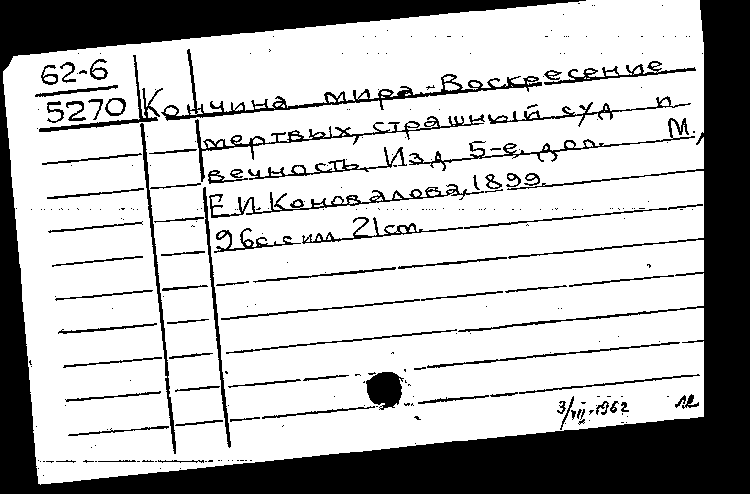 62-6
5270 Кончина мира.-Воскресение
мертвых, страшный суд и
вечность. Изд. 5-е, доп. М.,
Е.И.Коновалова, 1899.
96с. с илл. 21см.
3/VII-1962